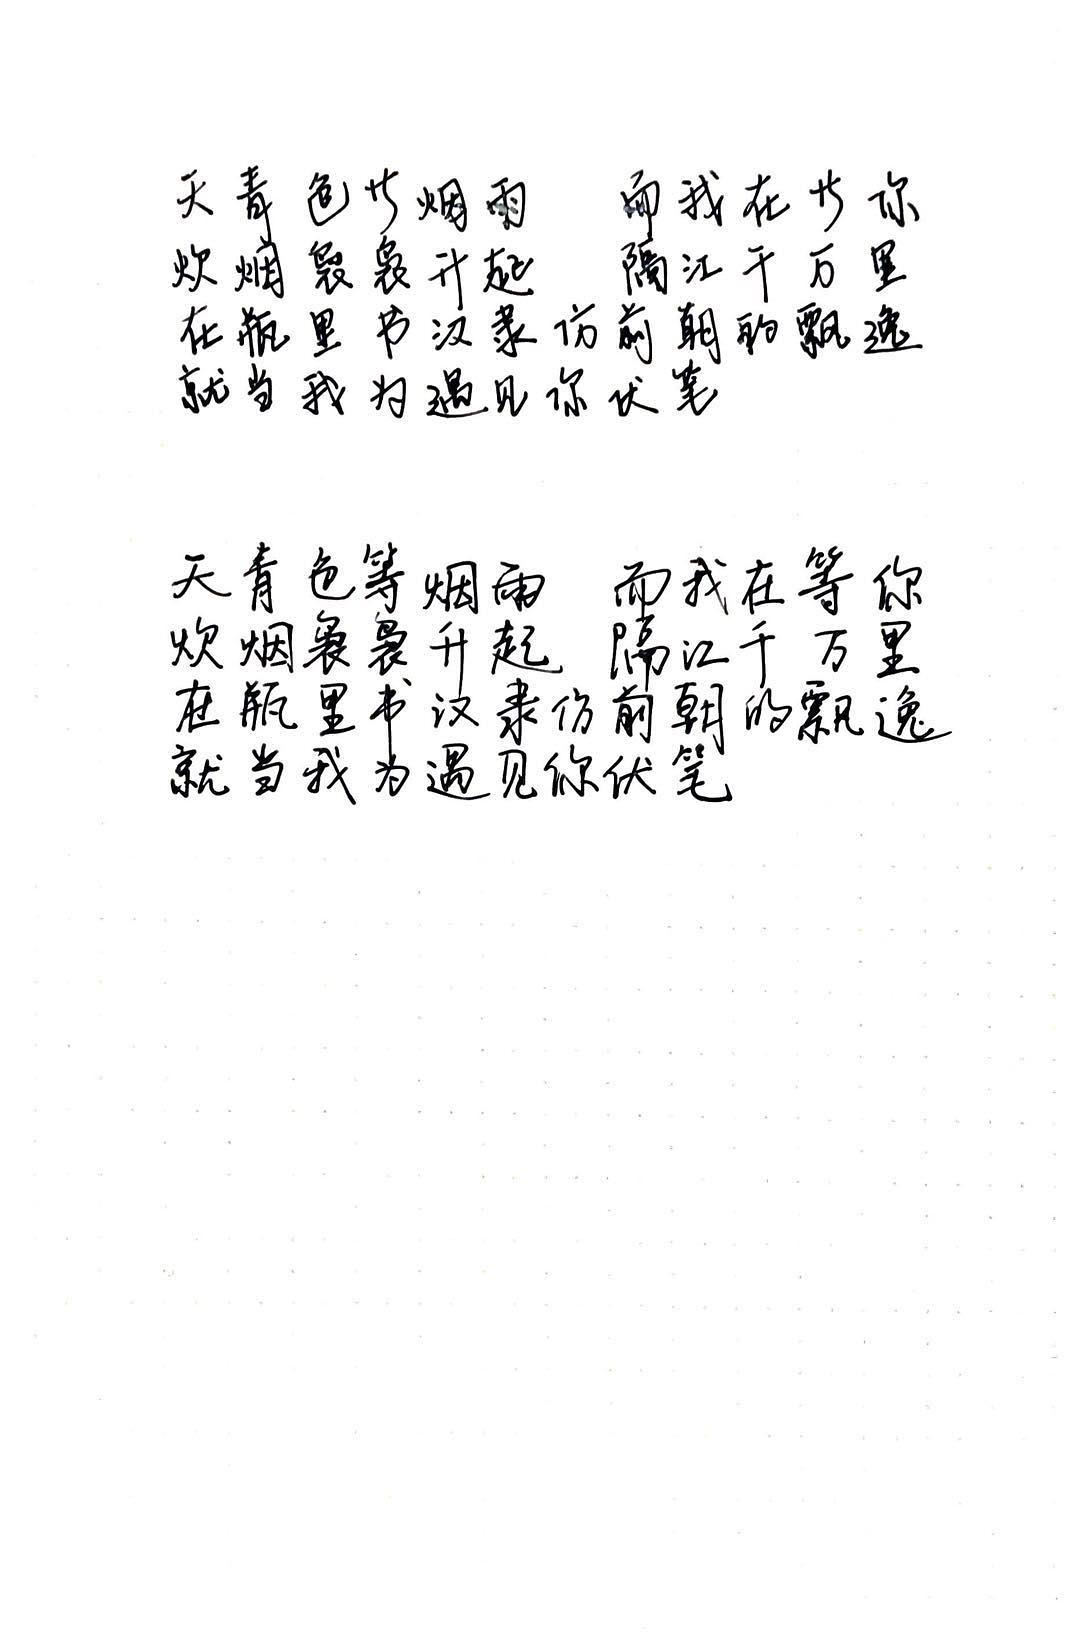 天青色等烟雨 而我在等你
炊烟袅袅升起 隔江千万里
在瓶里书汉隶仿前朝的飘逸
就当我为遇见你伏笔
天青色等烟雨 而我在等你
炊烟袅袅升起 隔江千万里
在瓶里书汉隶仿前朝的飘逸
就当我为遇见你伏笔